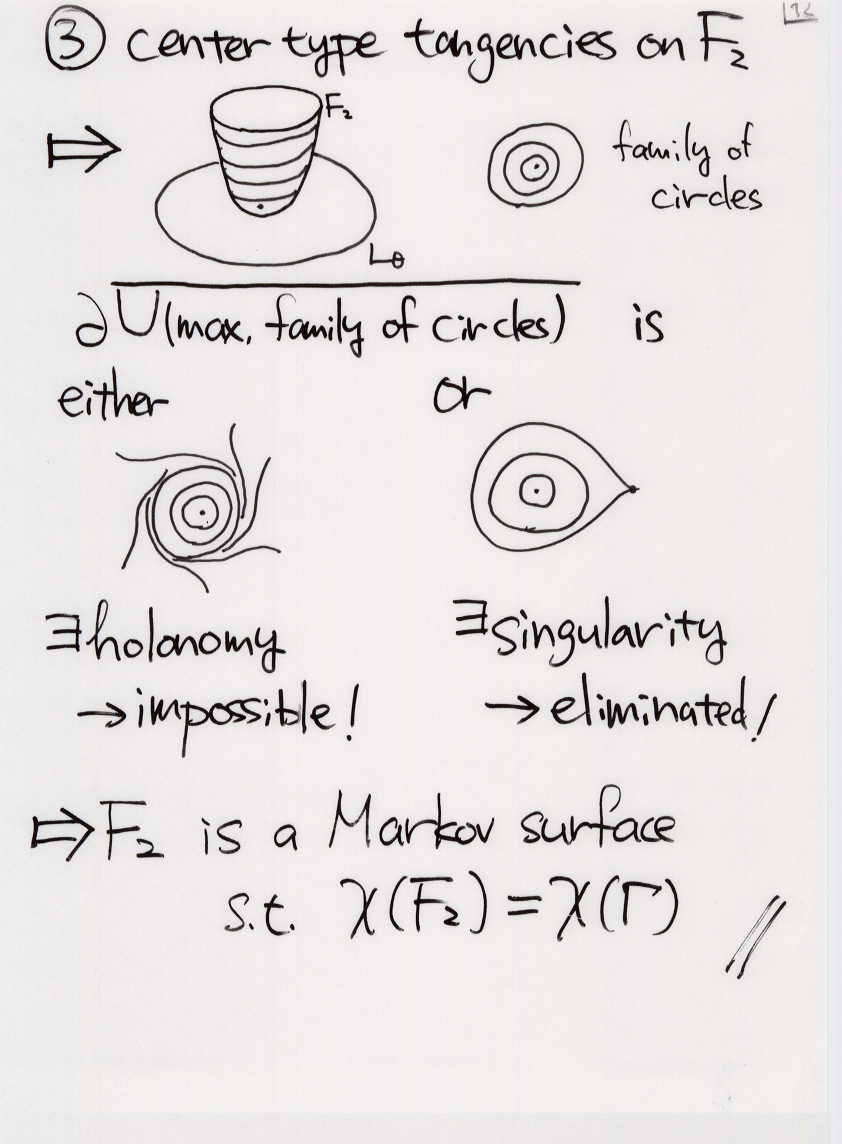 ③ center type tangencies on F₂
⇒
F₂
Lθ
family of
circles
∂U(max. family of circles) is
either
or
∃holonomy
→impossible!
∃singularity
→eliminated!
⇒F₂ is a Markov surface
s.t. χ(F₂)=χ(Γ) //